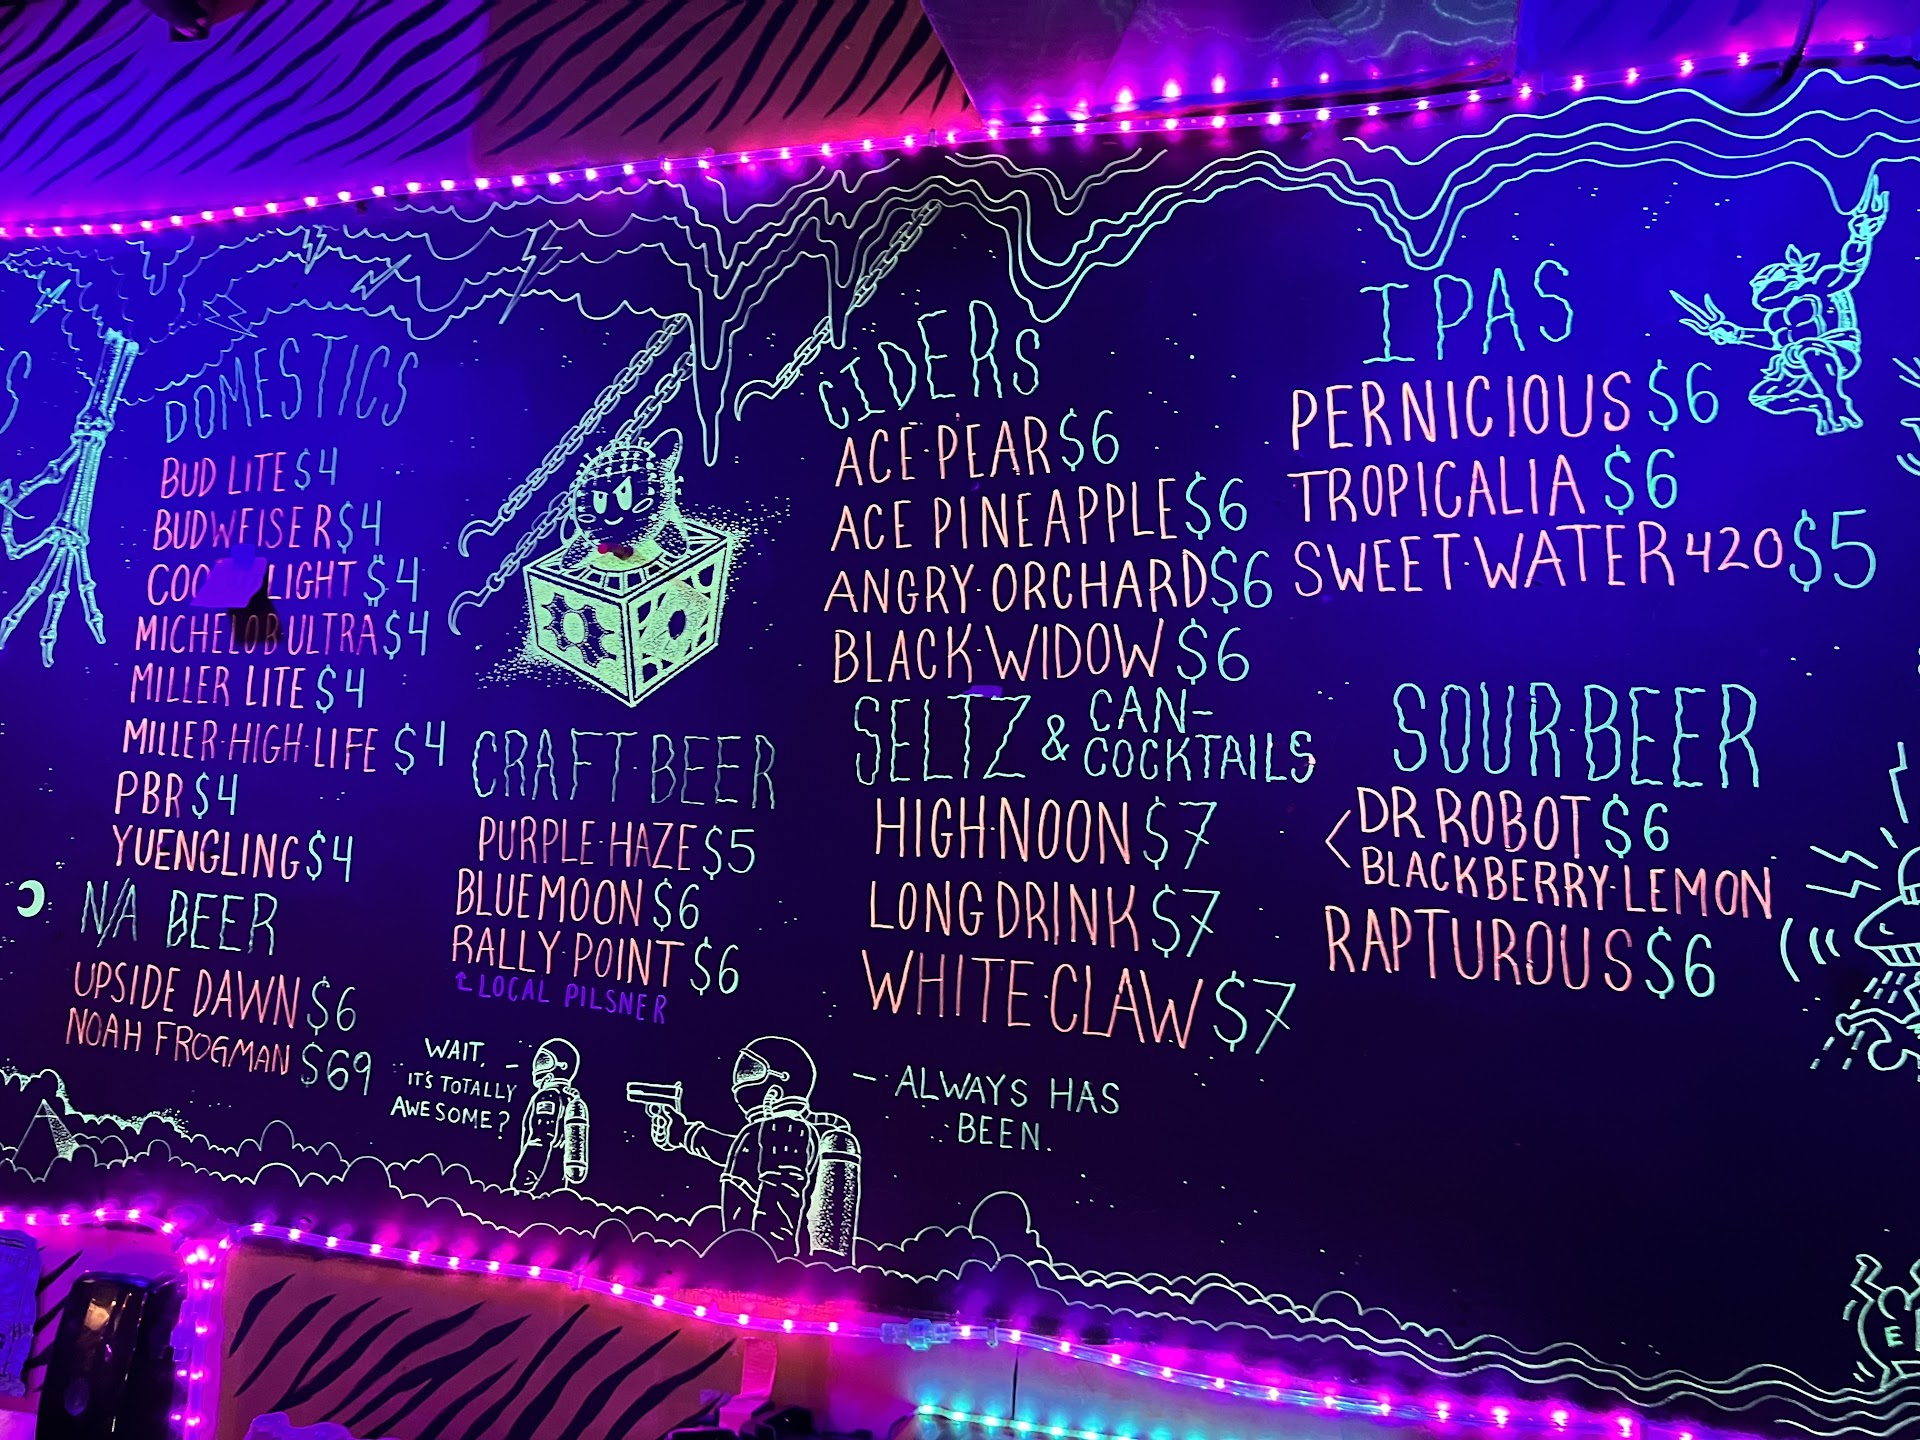 S
DOMESTICS
BUD LITE $4
BUDWEISER $4
LIGHT $4
MICHELOB ULTRA $4
MILLER LITE $4
MILLER·HIGH·LIFE $4
PBR $4
YUENGLING $4
N/A BEER
UPSIDE DAWN $6
NOAH FROGMAN $69
CRAFT·BEER
PURPLE·HAZE $5
BLUE MOON $6
RALLY·POINT $6
LOCAL PILSNER
WAIT,
IT'S TOTALLY
AWESOME?
CIDERS
ACE·PEAR $6
ACE PINEAPPLE $6
ANGRY·ORCHARD $6
BLACK·WIDOW $6
SELTZ & CAN-
COCKTAILS
HIGH·NOON $7
LONG DRINK $7
WHITE·CLAW $7
- ALWAYS HAS
BEEN.
IPAS
PERNICIOUS $6
TROPICALIA $6
SWEET·WATER 420 $5
SOUR·BEER
DR ROBOT $6
BLACKBERRY·LEMON
RAPTUROUS $6
E